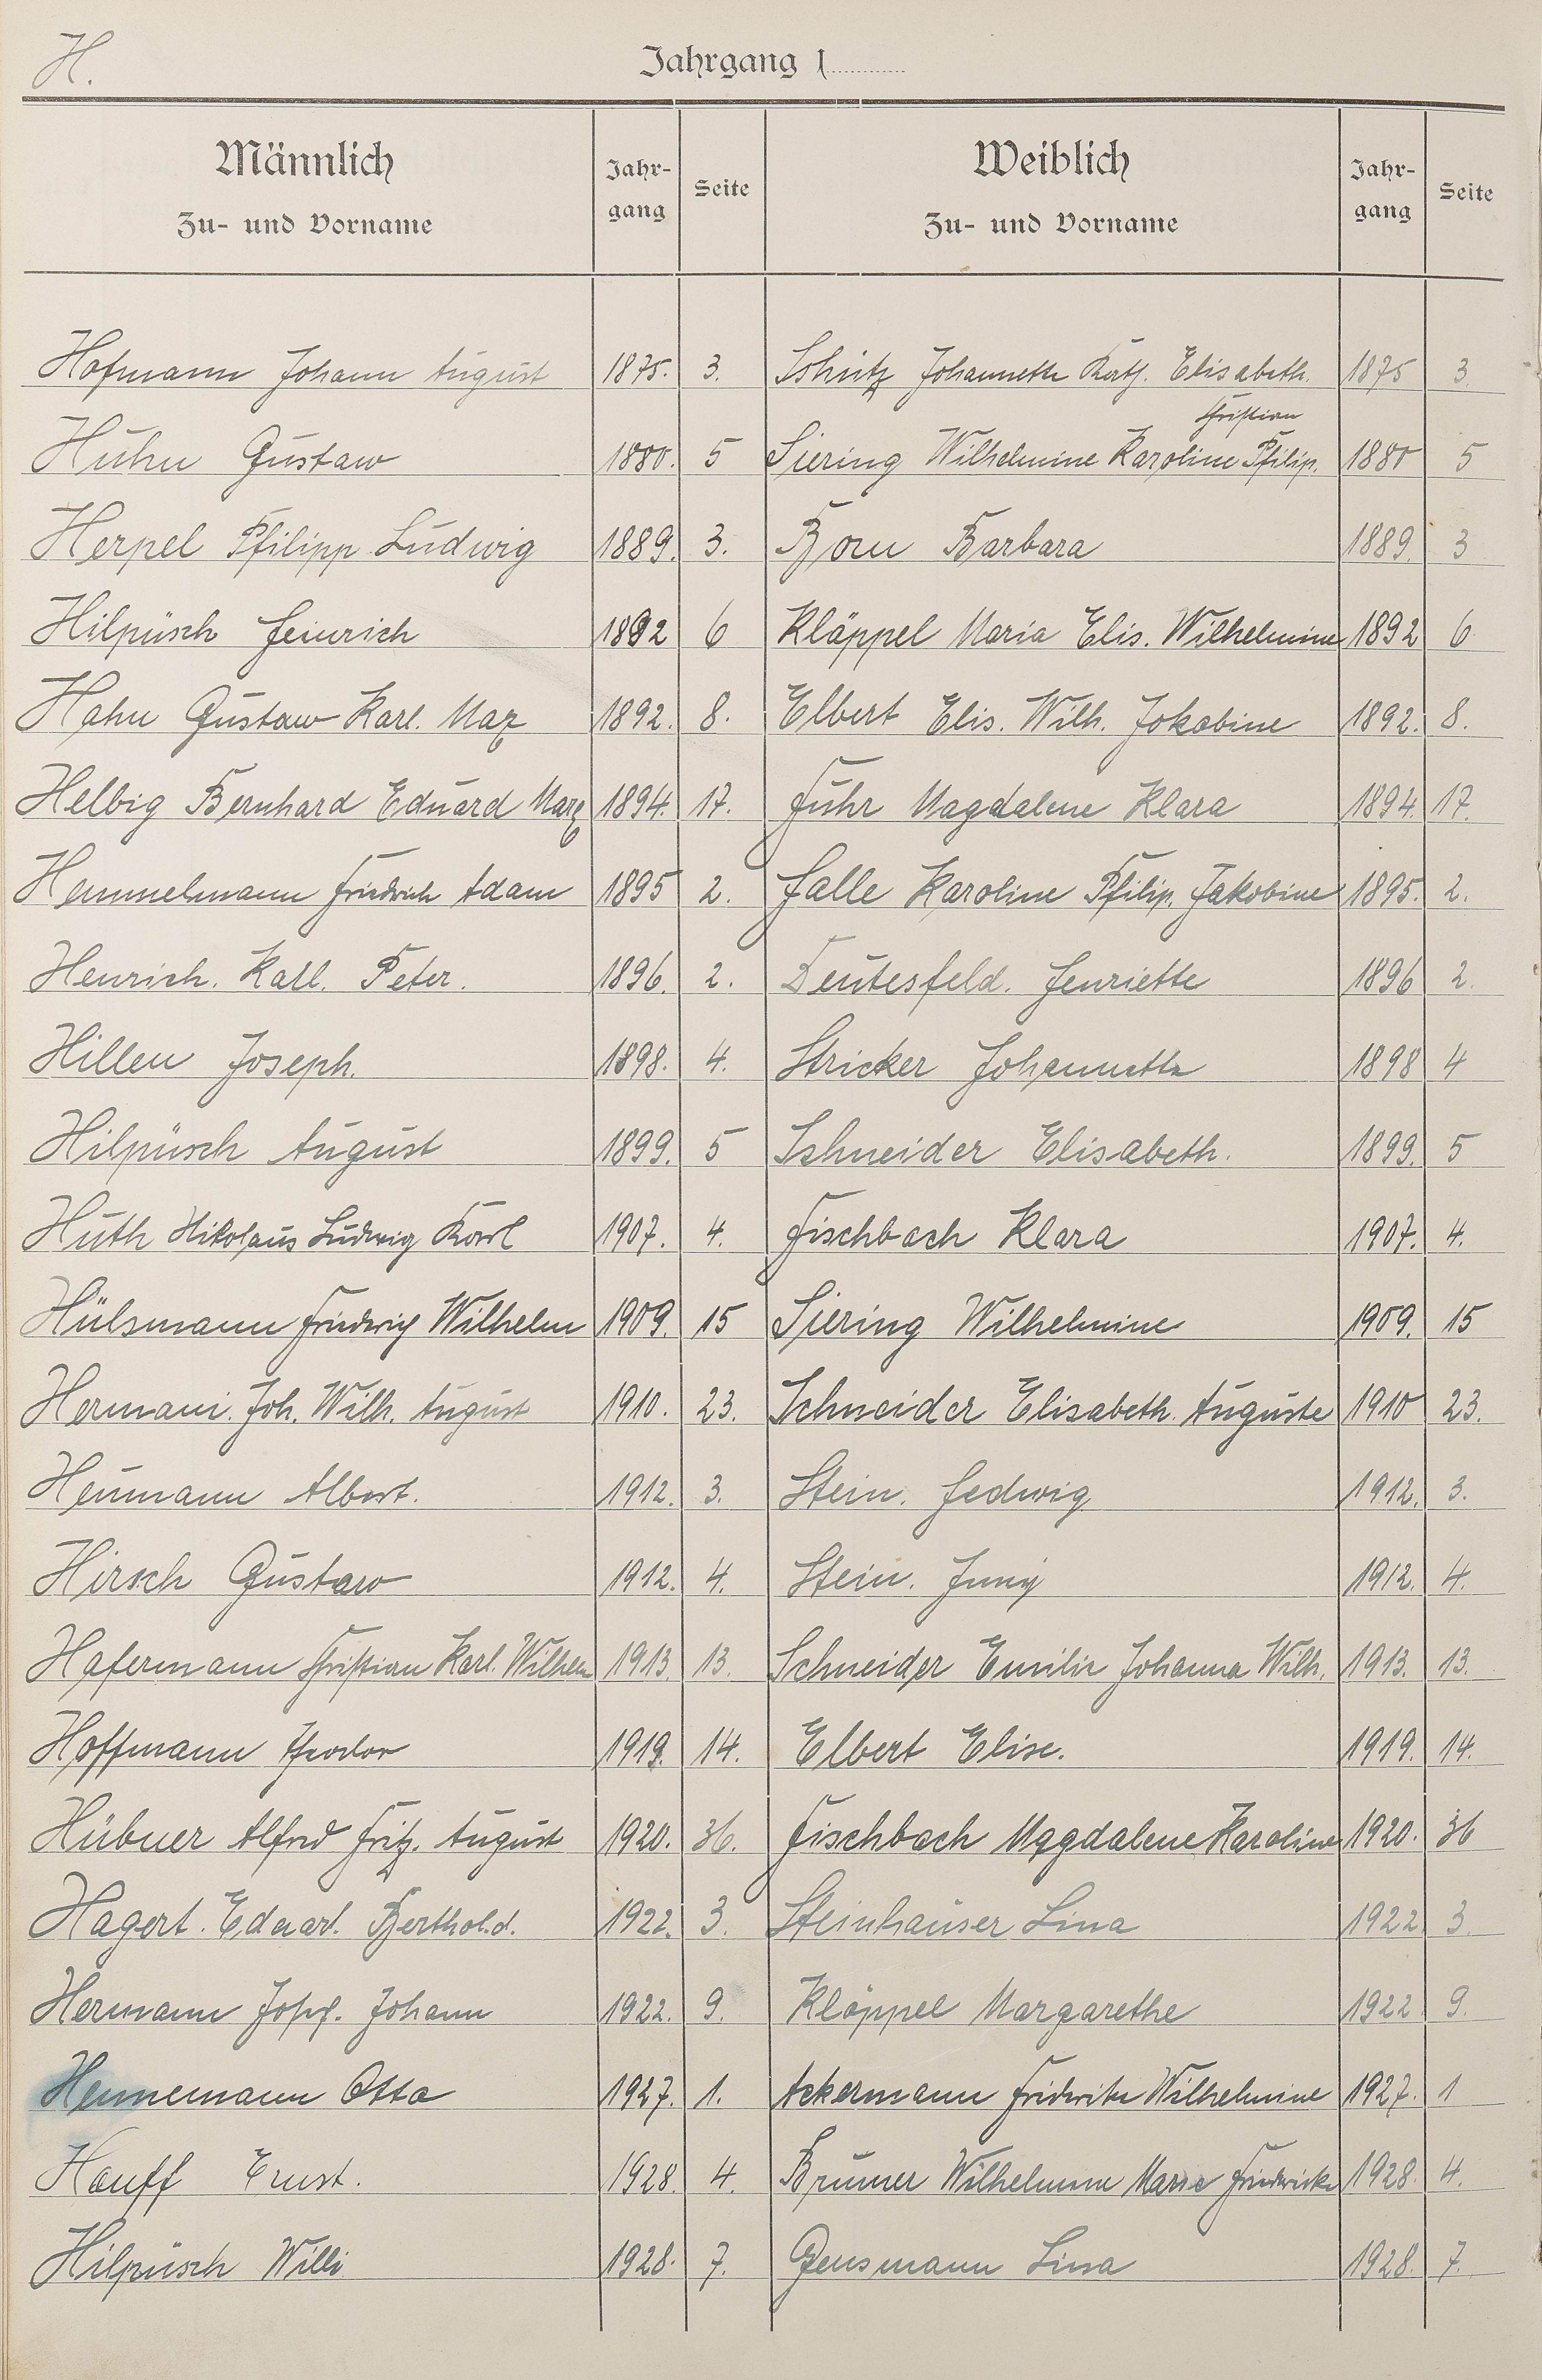 H.
Jahrgang 1
Männlich
Zu- und Vorname
Jahr-
gang
Seite
Weiblich
Zu- und Vorname
Jahr-
gang
Seite
Hofmann Johann August 1875. 3. Schütz Johannette Kath. Elisabeth. 1875 3
Christian
Huhn Gustaw 1880. 5 Siering Wilhelmine Karoline Philip. 1880 5
Herpel Philipp Ludwig 1889. 3. Born Barbara 1889. 3
Hilpüsch Heinrich 1892 6 Kläppel Maria Elis. Wilhelmine 1892 6
Hahn Gustaw Karl. Max 1892. 8. Elbert Elis. Wilh. Jokobine 1892. 8.
Helbig Bernhard Eduard Marx 1894. 17. Fuhr Magdalene Klara 1894. 17.
Hemmelmann Friedrich Adam 1895 2. Halle Karoline Philip. Jakobine 1895. 2.
Henrich. Karl. Peter. 1896. 2. Deutesfeld. Henriette 1896 2.
Hillen Joseph. 1898. 4. Stricker Johannette 1898 4
Hilpüsch August 1899. 5 Schneider Elisabeth. 1899. 5
Huth Nikolaus Ludwig Karl 1907. 4. Fischbach Klara 1907. 4.
Hülsmann Friedrich Wilhelm 1909. 15 Siering Wilhelmine 1909. 15
Hermani. Joh. Wilh. August 1910. 23. Schneider Elisabeth. Auguste 1910 23.
Heumann Albert. 1912. 3. Stein. Hedwig 1912. 3.
Hirsch Gustaw 1912. 4. Stein. Jenny 1912. 4.
Hafermann Christian Karl. Wilhelm 1913. 13. Schneider Emilie Johanna Wilh. 1913. 13.
Hoffmann Theodor 1919. 14. Elbert Elise. 1919. 14.
Hübner Alfred Fritz. August 1920. 36. Fischbach Magdalene Karoline 1920. 36
Hagert. Eduard. Berthold. 1922. 3. Steinhauser Lina 1922 3.
Hermann Joseph. Johann 1922. 9. Kläppel Margarethe 1922 9.
Hennemann Otto 1927. 1. Ackermann Fridericke Wilhelmine 1927. 1
Hauff Ernst. 1928. 4. Brunner Wilhelmine Marie Friedericke 1928. 4.
Hilpüsch Willi 1928. 7. Gensmann Lina 1928. 7.